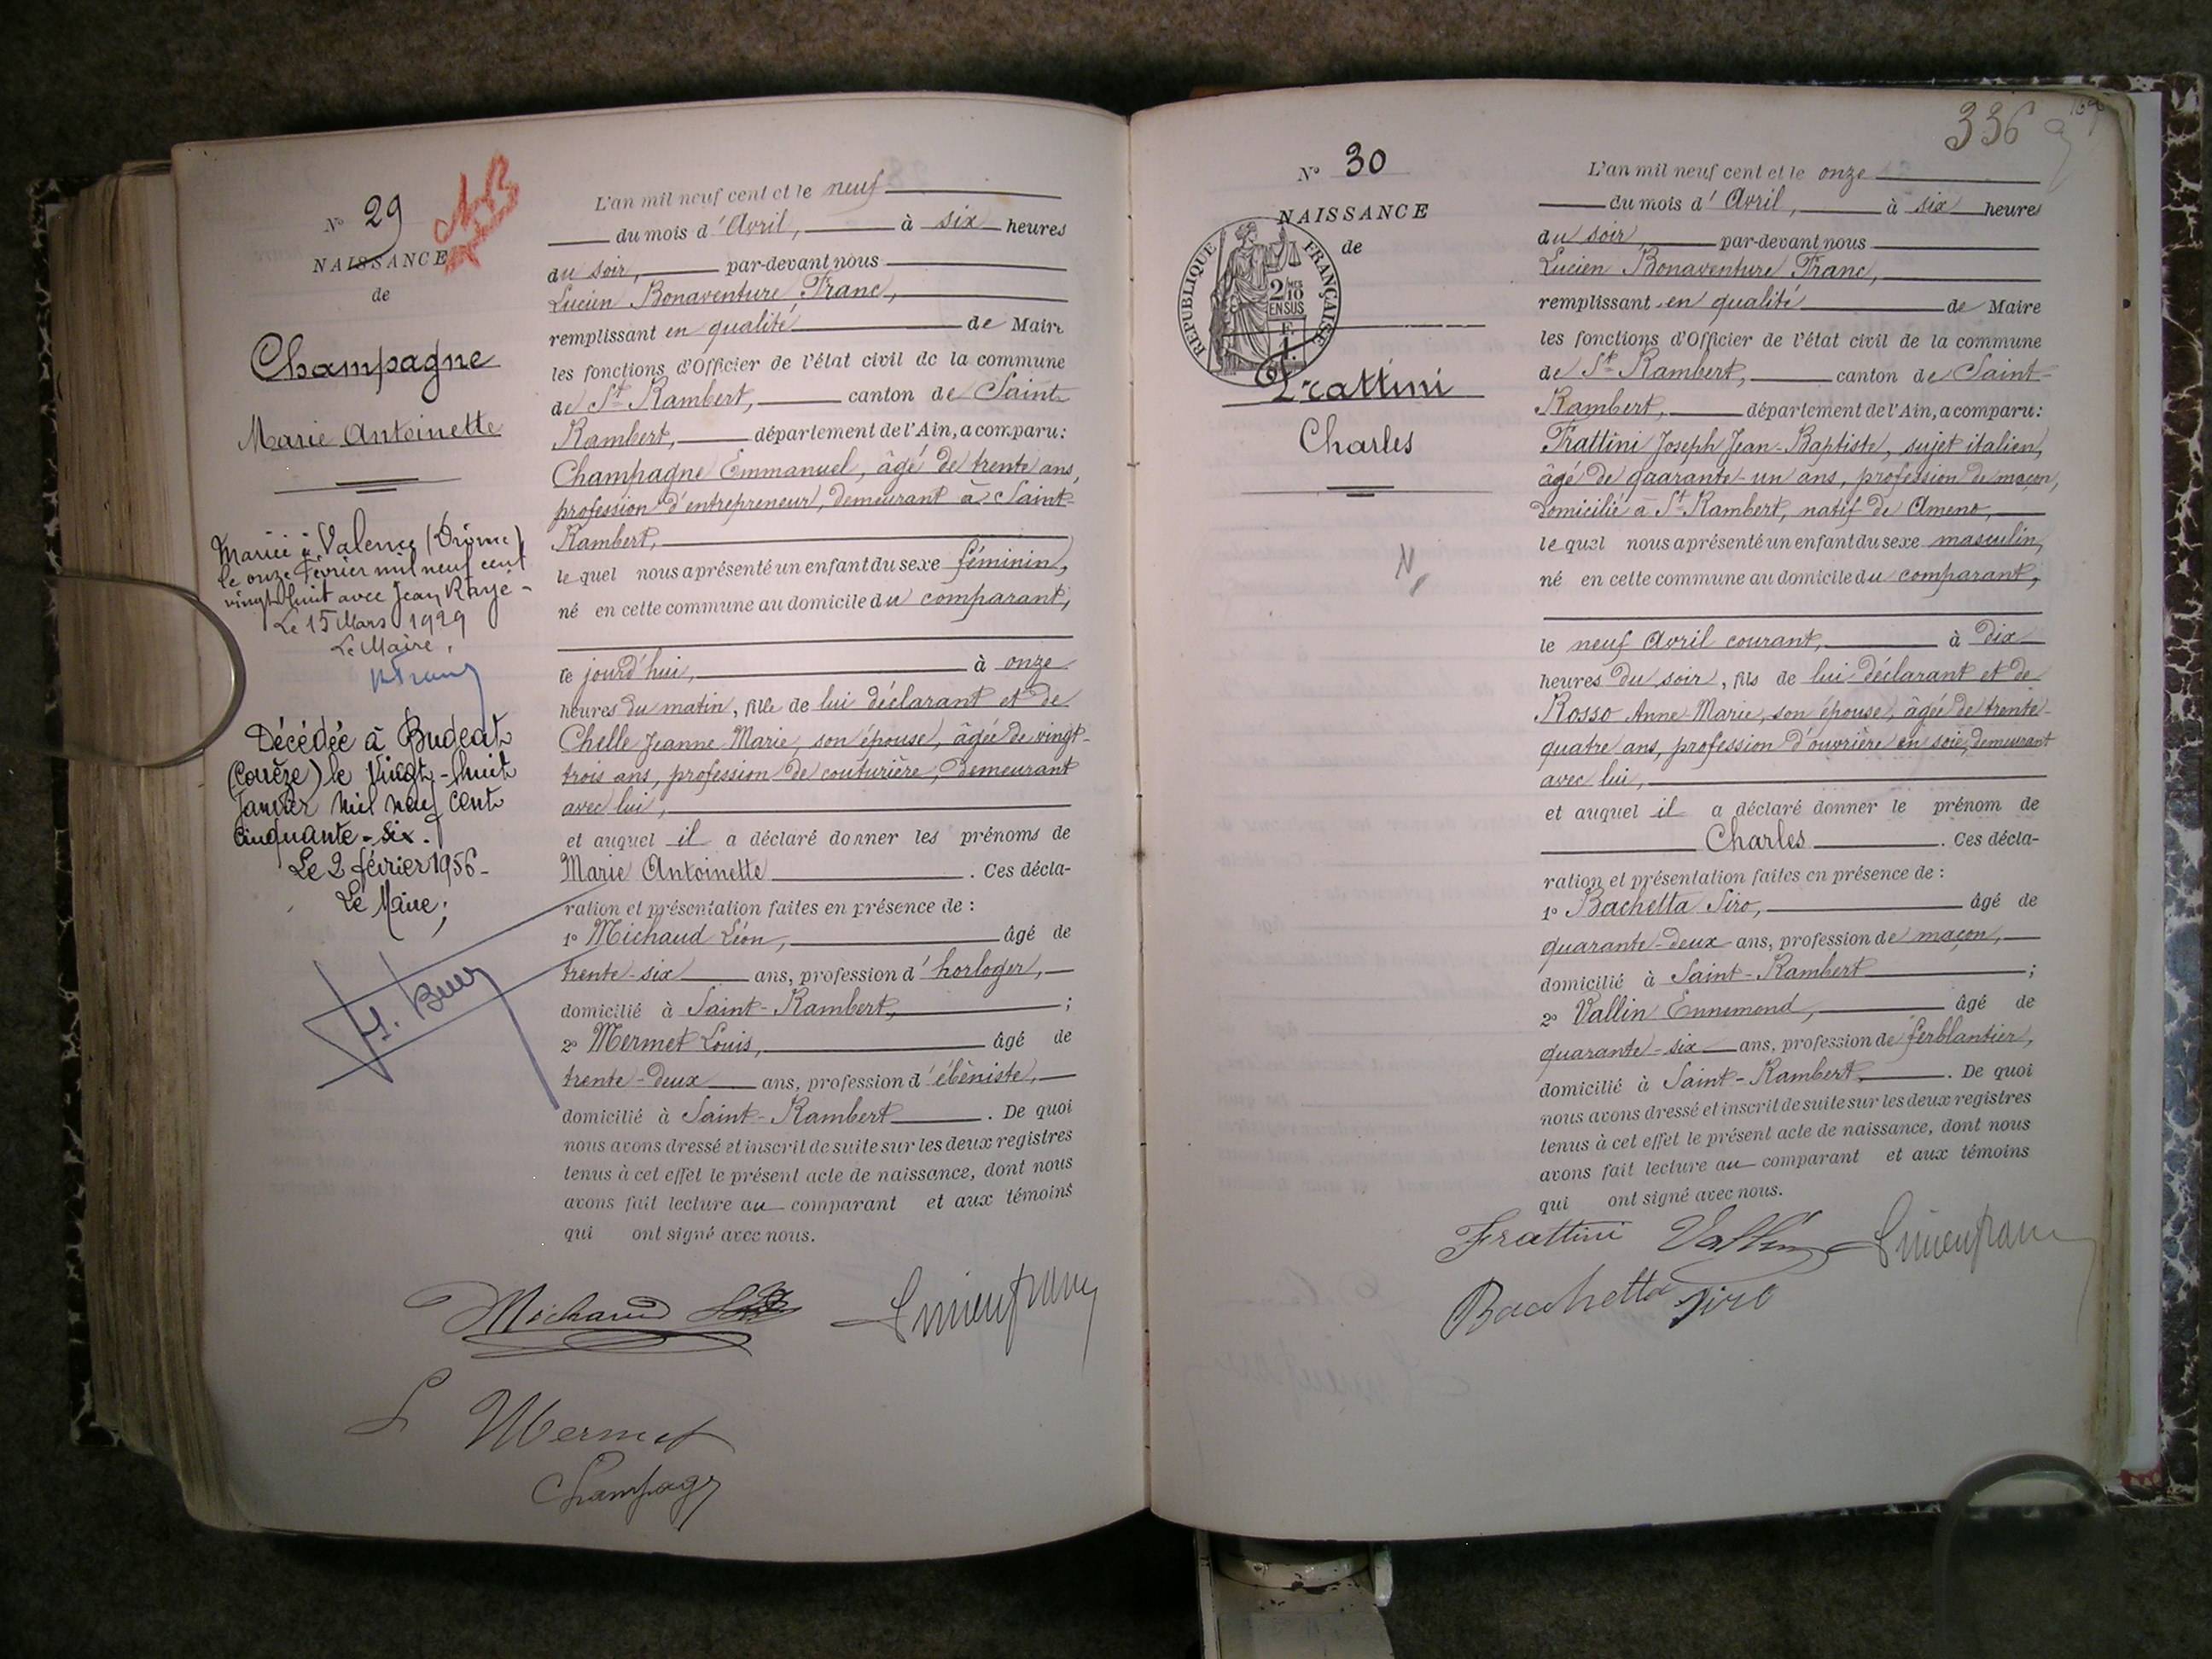 N° 29
NAISSANCE
de
Champagne
Marie Antoinette
Mariée à Valence (Drôme)
le onze Février mil neuf cent
vingt huit avec Jean
Le 15 Mars 1929
Le Maire,
Décédée à
(Corrèze) le Vingt-huit
Janvier mil neuf cent
Cinquante-Six.
Le 2 février 1956-
Le Maire;
L'an mil neuf cent et le neuf
du mois d'Avril, à six heures
du soir, par-devant nous
Lucien Bonaventure Franc,
remplissant en qualité de Maire
les fonctions d'Officier de l'état civil de la commune
de St Rambert, canton de Saint-
Rambert, département de l'Ain, a comparu:
Champagne Emmanuel, âgé de trente ans,
profession d'entrepreneur, demeurant à Saint-
Rambert,
le quel nous a présenté un enfant du sexe féminin,
né en cette commune au domicile du comparant,
le jourd'hui, à onze
heures du matin, fille de lui déclarant et de
Chelle Jeanne Marie, son épouse, âgée de vingt-
trois ans, profession de couturière, demeurant
avec lui,
et auquel il a déclaré donner les prénoms de
Marie Antoinette. Ces décla-
ration et présentation faites en présence de :
1° Michaud Léon, âgé de
trente-six ans, profession d'horloger,
domicilié à Saint-Rambert, ;
2° Mermet Louis, âgé de
trente-deux ans, profession d'ébéniste,
domicilié à Saint-Rambert. De quoi
nous avons dressé et inscrit de suite sur les deux registres
tenus à cet effet le présent acte de naissance, dont nous
avons fait lecture au comparant et aux témoins
qui ont signé avec nous.
Michaud
L Mermet
Champagne
336
N° 30
NAISSANCE
de
RÉPUBLIQUE FRANÇAISE
2/10 MES
EN SUS
Frattini
Charles
N
L'an mil neuf cent et le onze
du mois d'Avril, à six heures
du soir, par-devant nous
Lucien Bonaventure Franc,
remplissant en qualité de Maire
les fonctions d'Officier de l'état civil de la commune
de St Rambert, canton de Saint-
Rambert, département de l'Ain, a comparu:
Frattini Joseph Jean-Baptiste, sujet italien,
âgé de quarante-un ans, profession de maçon,
domicilié à St Rambert, natif de Ameno,
le quel nous a présenté un enfant du sexe masculin,
né en cette commune au domicile du comparant,
le neuf Avril courant, à dix
heures du soir, fils de lui déclarant et de
Rosso Anne-Marie, son épouse, âgée de trente-
quatre ans, profession d'ouvrière en soie, demeurant
avec lui,
et auquel il a déclaré donner le prénom de
Charles. Ces décla-
ration et présentation faites en présence de :
1° Bachetta Siro, âgé de
quarante-deux ans, profession de maçon,
domicilié à Saint-Rambert ;
2° Vallin Ennemond, âgé de
quarante-six ans, profession de ferblantier,
domicilié à Saint-Rambert. De quoi
nous avons dressé et inscrit de suite sur les deux registres
tenus à cet effet le présent acte de naissance, dont nous
avons fait lecture au comparant et aux témoins
qui ont signé avec nous.
Frattini Vallin
Bacchetta Siro